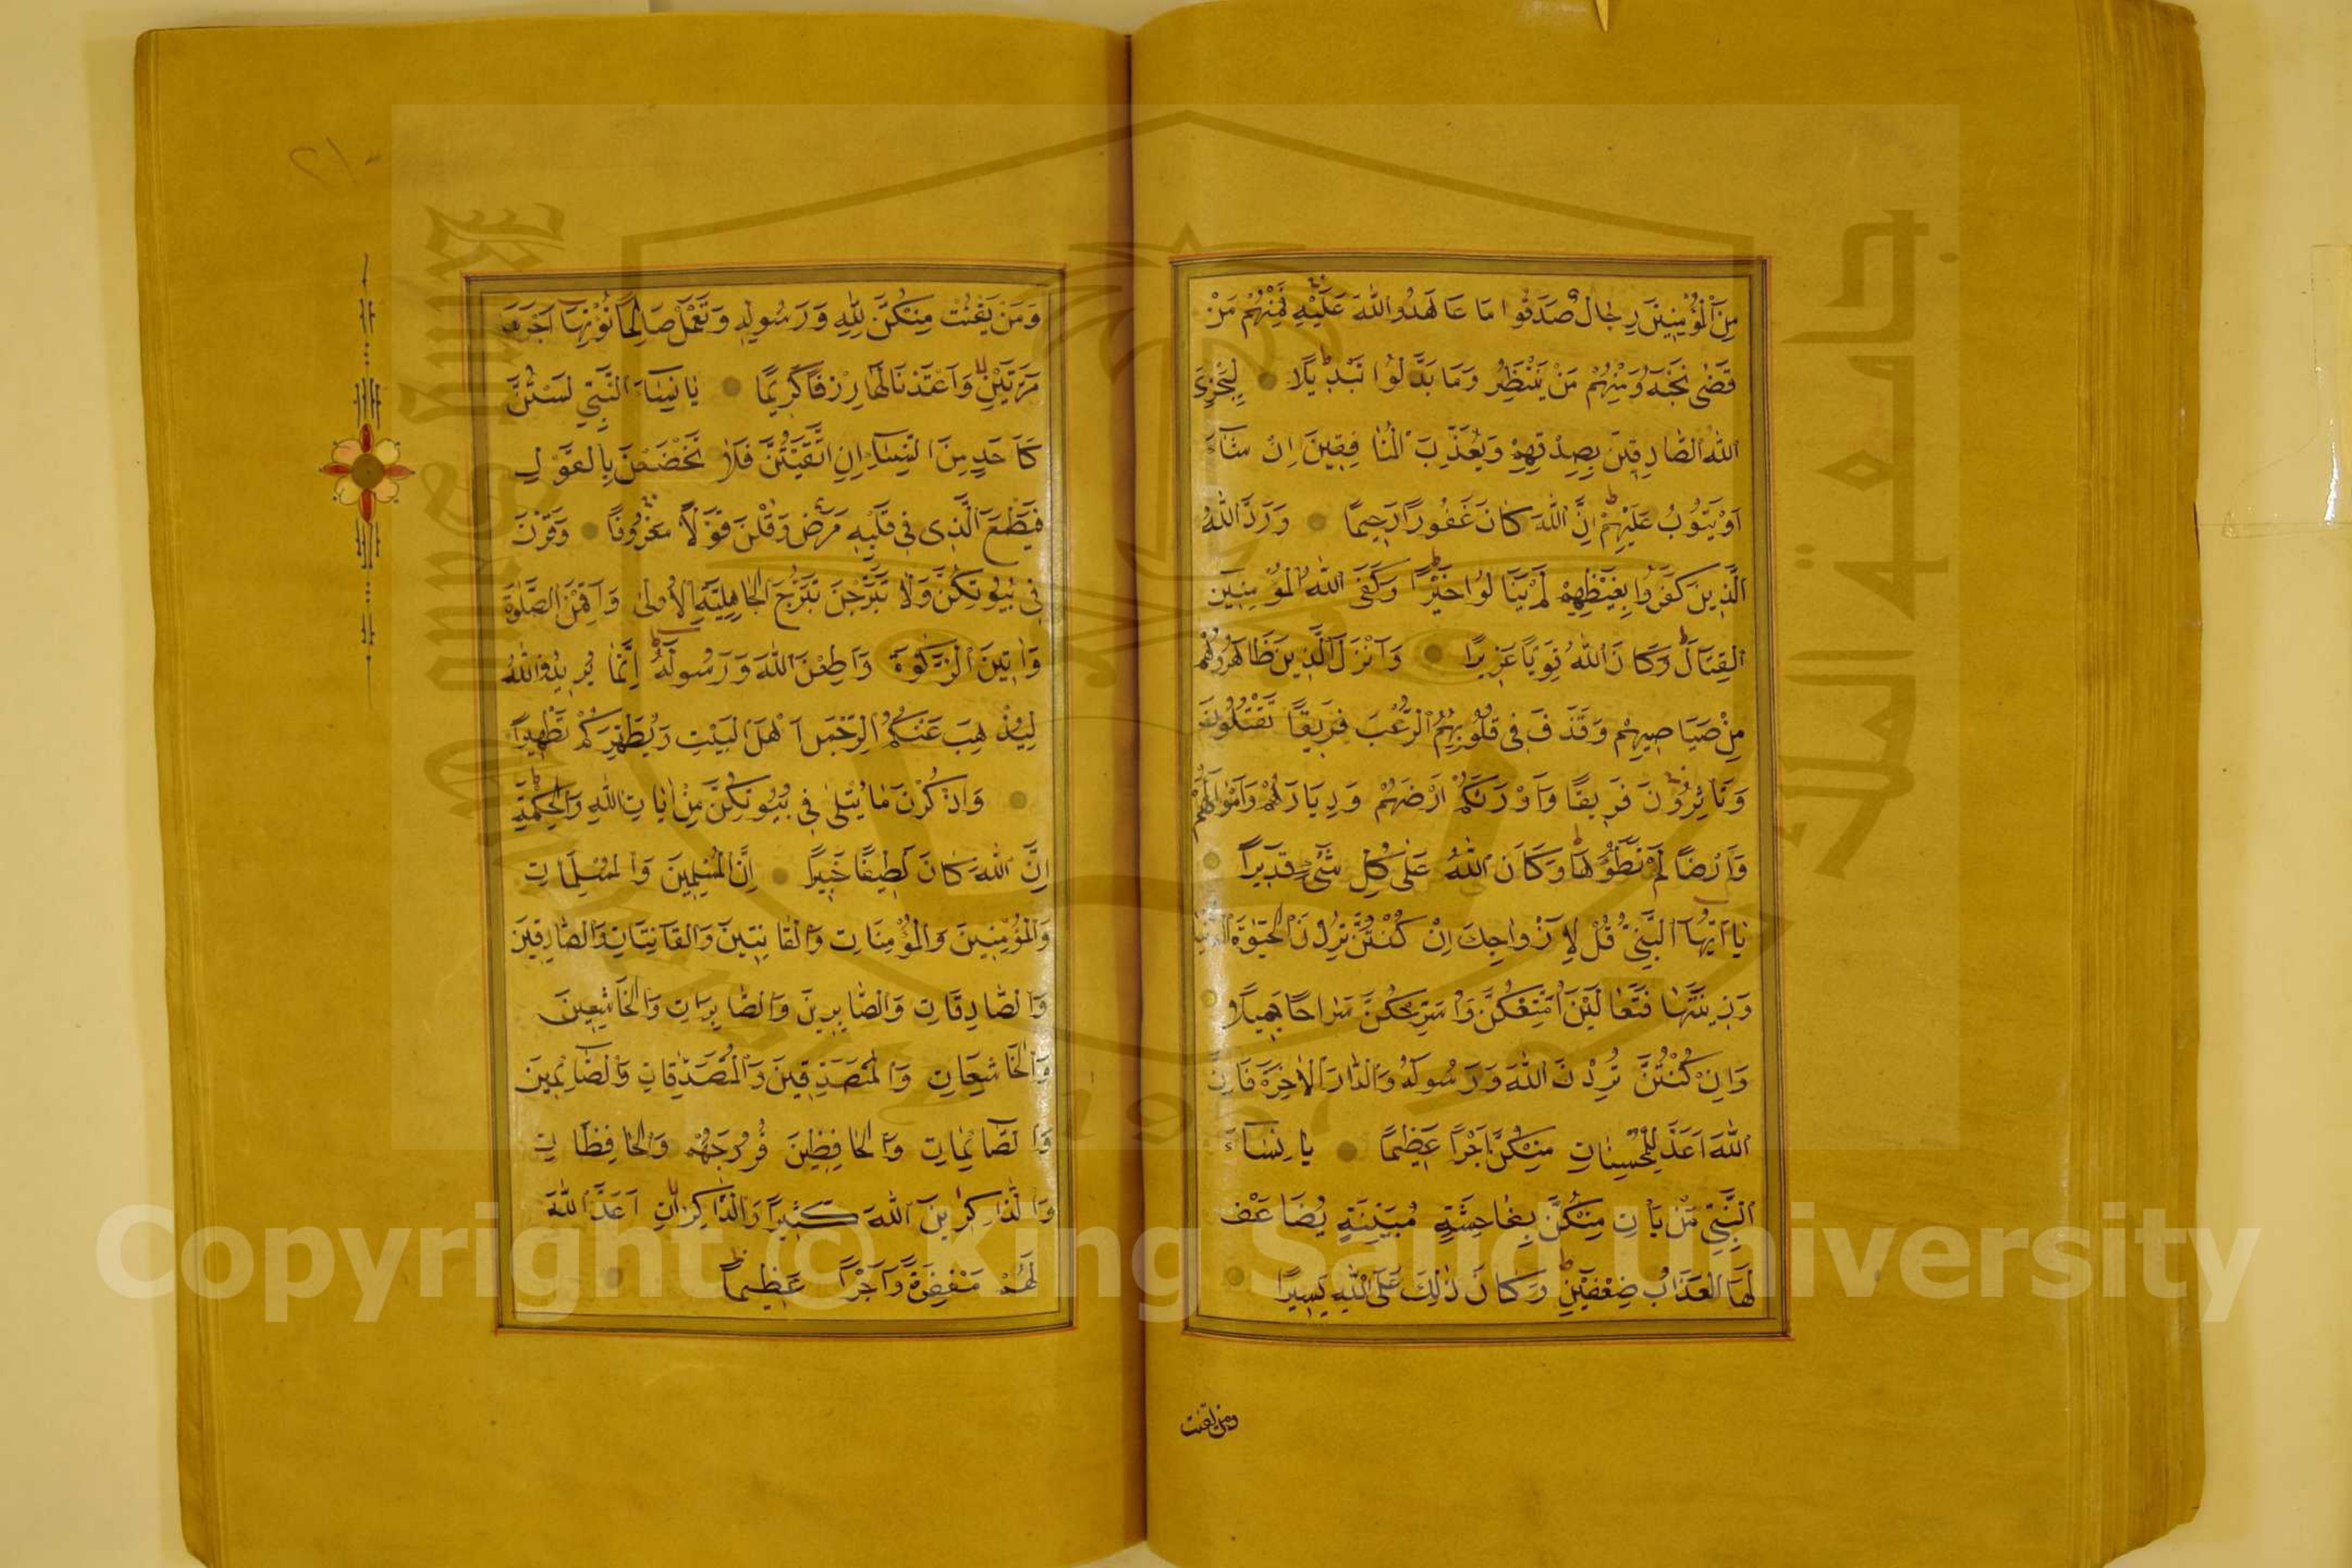 مِنَ الْمُؤْمِنِينَ رِجَالٌ صَدَقُوا مَا عَاهَدُوا اللّٰهَ عَلَيْهِ فَمِنْهُمْ مَنْ
قَضٰى نَحْبَهُ وَمِنْهُمْ مَنْ يَنْتَظِرُ وَمَا بَدَّلُوا تَبْدِيلًا لِيَجْزِيَ
اللّٰهُ الصَّادِقِينَ بِصِدْقِهِمْ وَيُعَذِّبَ الْمُنَافِقِينَ اِنْ شَآءَ
اَوْ يَتُوبُ عَلَيْهِمْ اِنَّ اللّٰهَ كَانَ غَفُورًا رَحِيمًا وَرَدَّ اللّٰهُ
الَّذِينَ كَفَرُوا بِغَيْظِهِمْ لَمْ يَنَالُوا خَيْرًا وَكَفَى اللّٰهُ الْمُؤْمِنِينَ
الْقِتَالَ وَكَانَ اللّٰهُ قَوِيًّا عَزِيزًا وَاَنْزَلَ الَّذِينَ ظَاهَرُوهُمْ
مِنْ صَيَاصِيهِمْ وَقَذَفَ فِي قُلُوبِهِمُ الرُّعْبَ فَرِيقًا تَقْتُلُونَ
وَتَأْسِرُونَ فَرِيقًا وَاَوْرَثَكُمْ اَرْضَهُمْ وَدِيَارَهُمْ وَاَمْوَالَهُمْ
وَاَرْضًا لَمْ تَطَؤُهَا وَكَانَ اللّٰهُ عَلٰى كُلِّ شَيْءٍ قَدِيرًا
يَا اَيُّهَا النَّبِيُّ قُلْ لِاَزْوَاجِكَ اِنْ كُنْتُنَّ تُرِدْنَ الْحَيٰوةَ الدُّنْيَا
وَزِينَتَهَا فَتَعَالَيْنَ اُمَتِّعْكُنَّ وَاُسَرِّحْكُنَّ سَرَاحًا جَمِيلًا
وَاِنْ كُنْتُنَّ تُرِدْنَ اللّٰهَ وَرَسُولَهُ وَالدَّارَ الْاٰخِرَةَ فَاِنَّ
اللّٰهَ اَعَدَّ لِلْمُحْسِنَاتِ مِنْكُنَّ اَجْرًا عَظِيمًا يَا نِسَآءَ
النَّبِيِّ مَنْ يَأْتِ مِنْكُنَّ بِفَاحِشَةٍ مُبَيِّنَةٍ يُضَاعَفْ
لَهَا الْعَذَابُ ضِعْفَيْنِ وَكَانَ ذٰلِكَ عَلَى اللّٰهِ يَسِيرًا
ومن يقنت
٢١٠
وَمَنْ يَقْنُتْ مِنْكُنَّ لِلّٰهِ وَرَسُولِهِ وَتَعْمَلْ صَالِحًا نُؤْتِهَا اَجْرَهَا
مَرَّتَيْنِ وَاَعْتَدْنَا لَهَا رِزْقًا كَرِيمًا يَا نِسَآءَ النَّبِيِّ لَسْتُنَّ
كَاَحَدٍ مِنَ النِّسَآءِ اِنِ اتَّقَيْتُنَّ فَلَا تَخْضَعْنَ بِالْقَوْلِ
فَيَطْمَعَ الَّذِي فِي قَلْبِهِ مَرَضٌ وَقُلْنَ قَوْلًا مَعْرُوفًا وَقَرْنَ
فِي بُيُوتِكُنَّ وَلَا تَبَرَّجْنَ تَبَرُّجَ الْجَاهِلِيَّةِ الْاُولٰى وَاَقِمْنَ الصَّلٰوةَ
وَاٰتِينَ الزَّكٰوةَ وَاَطِعْنَ اللّٰهَ وَرَسُولَهُ اِنَّمَا يُرِيدُ اللّٰهُ
لِيُذْهِبَ عَنْكُمُ الرِّجْسَ اَهْلَ الْبَيْتِ وَيُطَهِّرَكُمْ تَطْهِيرًا
وَاذْكُرْنَ مَا يُتْلٰى فِي بُيُوتِكُنَّ مِنْ اٰيَاتِ اللّٰهِ وَالْحِكْمَةِ
اِنَّ اللّٰهَ كَانَ لَطِيفًا خَبِيرًا اِنَّ الْمُسْلِمِينَ وَالْمُسْلِمَاتِ
وَالْمُؤْمِنِينَ وَالْمُؤْمِنَاتِ وَالْقَانِتِينَ وَالْقَانِتَاتِ وَالصَّادِقِينَ
وَالصَّادِقَاتِ وَالصَّابِرِينَ وَالصَّابِرَاتِ وَالْخَاشِعِينَ
وَالْخَاشِعَاتِ وَالْمُتَصَدِّقِينَ وَالْمُتَصَدِّقَاتِ وَالصَّائِمِينَ
وَالصَّائِمَاتِ وَالْحَافِظِينَ فُرُوجَهُمْ وَالْحَافِظَاتِ
وَالذَّاكِرِينَ اللّٰهَ كَثِيرًا وَالذَّاكِرَاتِ اَعَدَّ اللّٰهُ
لَهُمْ مَغْفِرَةً وَاَجْرًا عَظِيمًا
Copyright © King Saud University